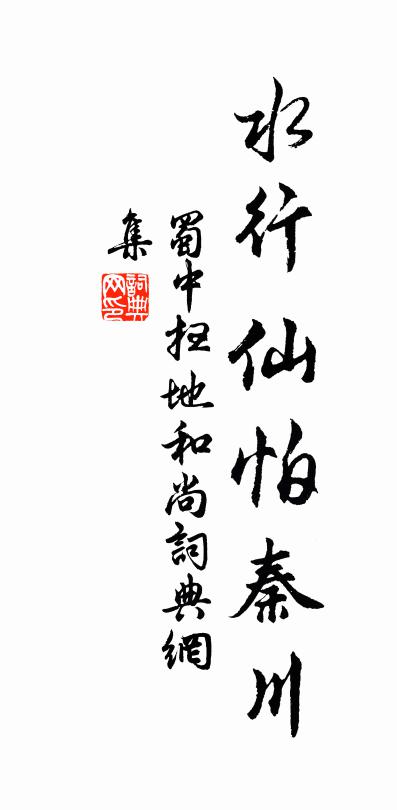 水行仙怕秦川
蜀中扫地和尚詞典網
集
詞典
网印